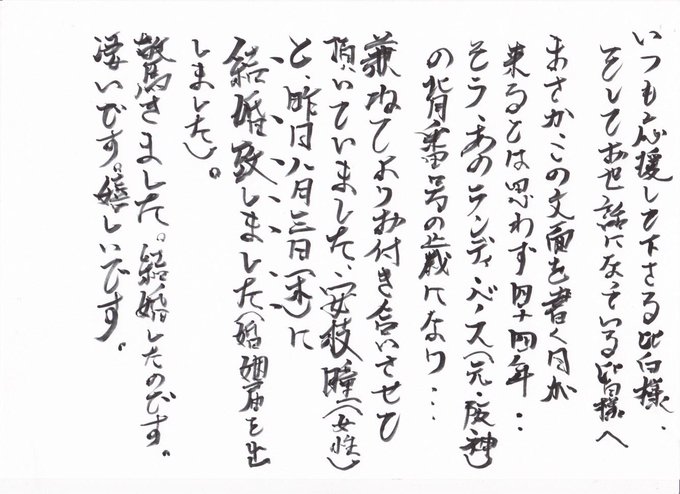 いつも応援して下さる皆様、
そしてお世話になっている皆様へ
まさか、この文面を書く日が
来るとは思わず四十四年…
そう、あのランディ・バース（元・阪神）
の背番号の歳になり…
兼ねてよりお付き合いさせて
頂いていました、安枝瞳（女性）
と、昨日八月三日（木）に
結婚致しました（婚姻届を出
しました）。
驚きました。結婚したのです。
凄いです。嬉しいです。